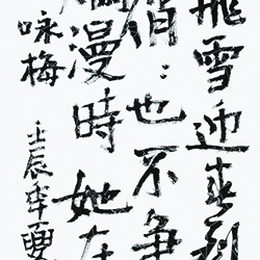 飛雪迎春到
俏也不争
爛漫時她在
咏梅
壬辰年夏